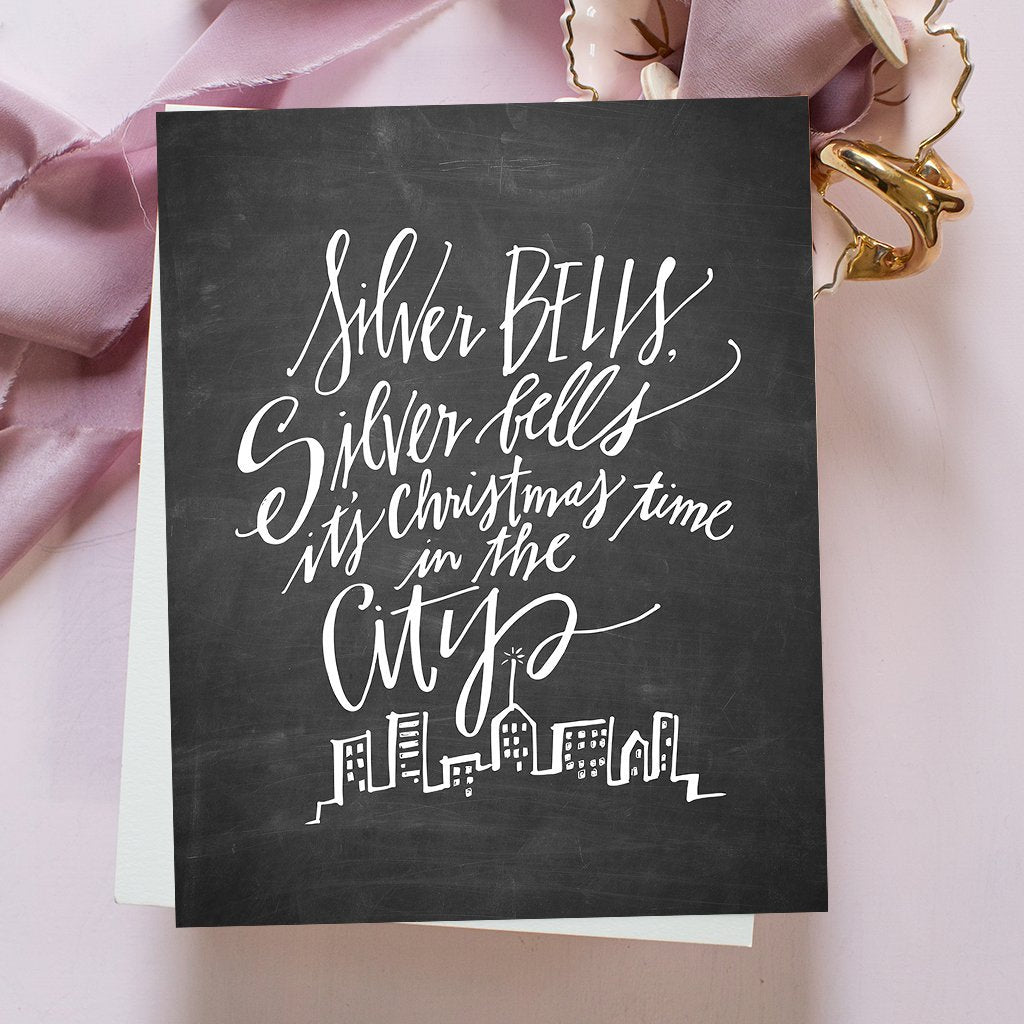 Silver BELLS,
Silver bells
it's Christmas time
in the
City